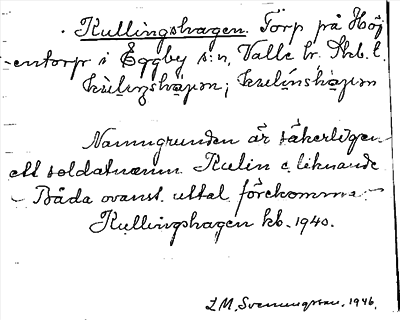 Kullingshagen. Torp på Höj
-entorp i Eggby s:n, Valle hr. Skb. l.
Namngrunden är säkerligen
ett soldatnamn Kulin e. liknande
– Båda ovanst. uttal förekomma. –
Kullingshagen kb. 1940.
L M. Svenungsson. 1946.